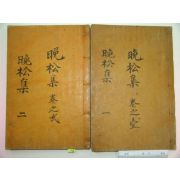 晩松集 卷之壹
晩松集 一
晩松集 卷之貳
晩松集 二